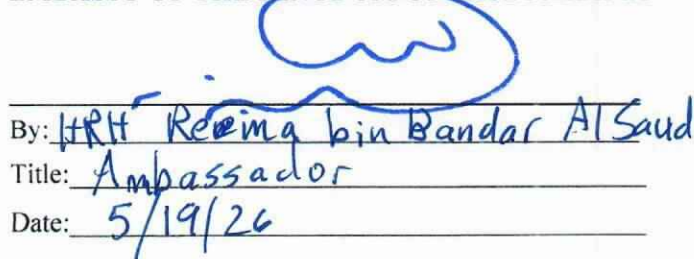 By: HRH Reema bin Bandar Al Saud
Title: Ambassador
Date: 5/19/26